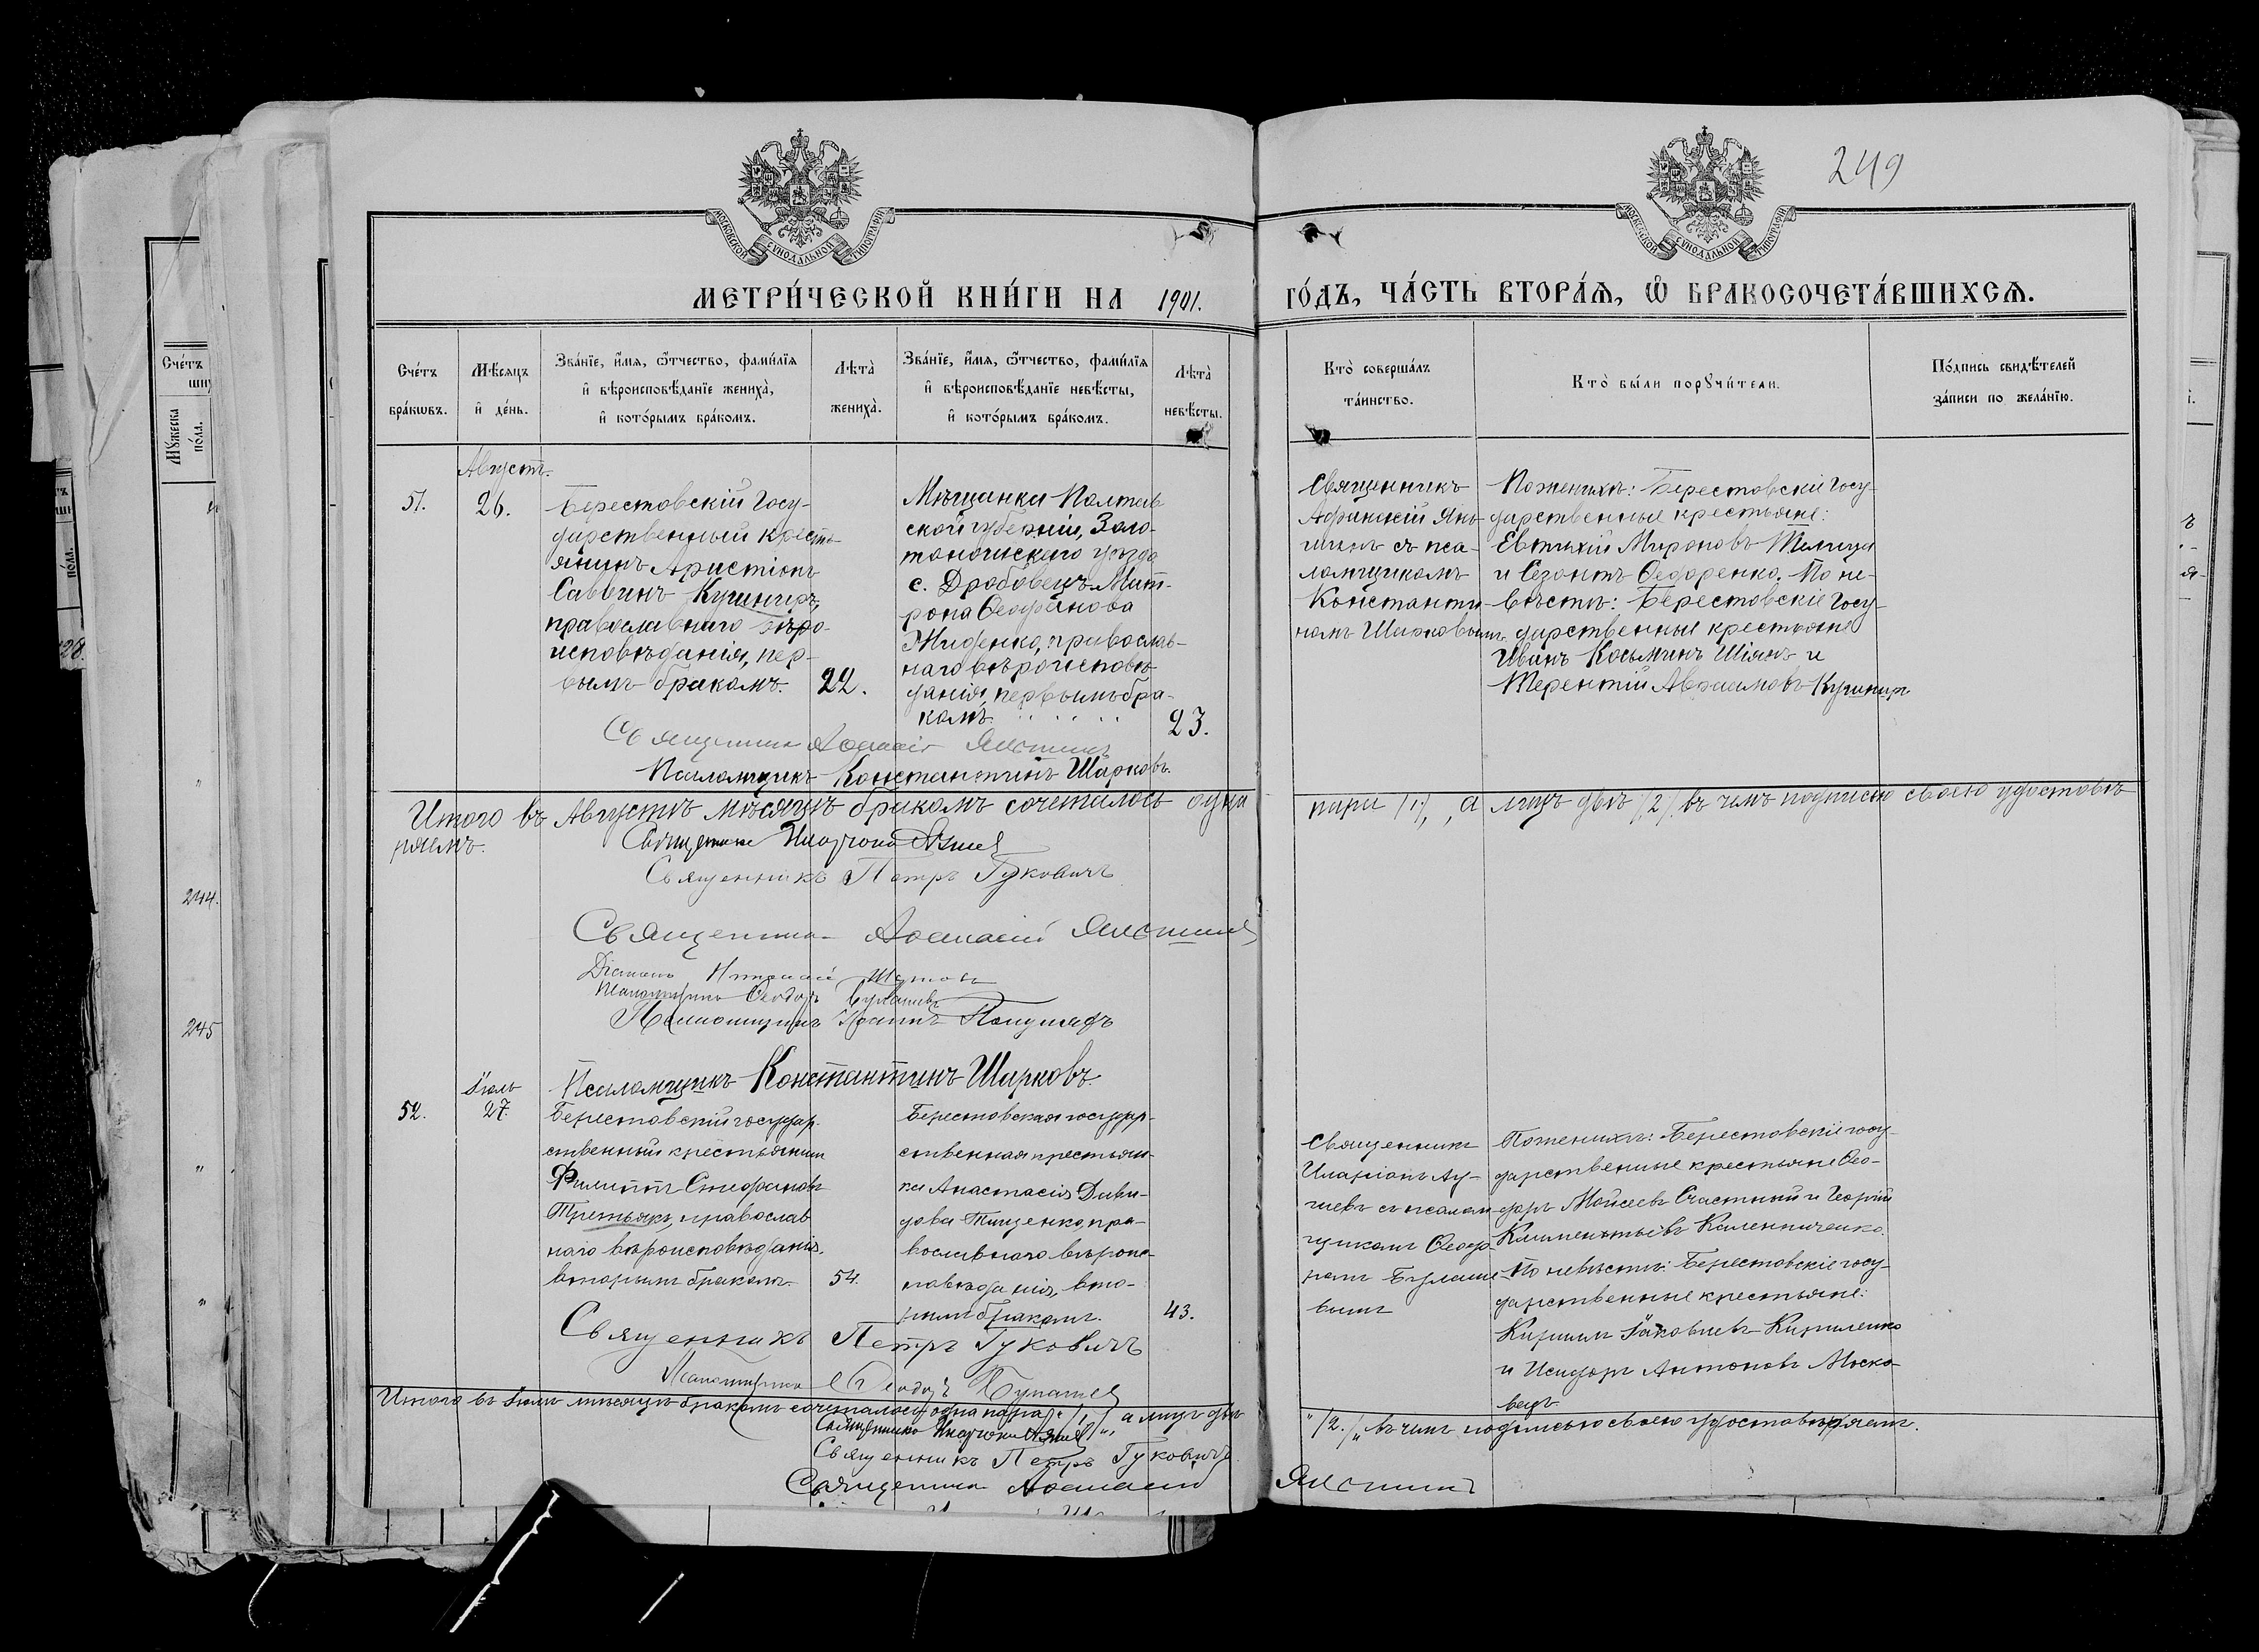 249
МОСКОВСКОЙ СѴНОДАЛЬНОЙ ТИПОГРАФІИ
МОСКОВСКОЙ СѴНОДАЛЬНОЙ ТИПОГРАФІИ
МЕТРИ́ЧЕСКОЙ КНИ́ГИ НА 1901. ГО́ДЪ, ЧА́СТЬ ВТОРА́Ѧ, Ѽ БРАКОСОЧЕТА́ВШИХСѦ.
Сче́тъ бра́кѡвъ.
Мѣ́сяцъ и҆ де́нь.
Зва́нїе, и҆́мѧ, ѻ҆́тчество, фами́лїѧ
и҆ вѣроисповѣ́данїе жениха̀,
и҆ кото́рымъ бра́комъ.
Лѣта̀ жениха̀.
Зва́нїе, и҆́мѧ, ѻ҆́тчество, фами́лїѧ
и҆ вѣроисповѣ́данїе невѣ́сты,
и҆ кото́рымъ бра́комъ.
Лѣта̀ невѣ́сты.
Кто̀ соверша́лъ та́инство.
Кто̀ бы́ли порꙋчи́тели.
По́дпись свидѣ́телей за́писи по жела́нїю.
Августъ.
51.
26.
Берестовскій Госу-
дарственный кресть-
янинъ Аристіонъ
Саввинъ Кушниръ,
православнаго вѣро-
исповѣданія, пер-
вымъ бракомъ.
22.
Мѣщанка Полтав
ской губерніи, Золо-
тоношскаго уѣзда
с. Дробовецъ Мит-
рона Ѳеофанова
Жиденко, православ-
наго вѣроисповѣ-
данія, первымъ бра-
комъ.
23.
Священникъ
Аѳанасій Яль-
шинъ съ пса-
ломщикомъ
Константи-
номъ Шарковымъ.
По женихѣ: Берестовскіе Госу-
дарственные крестьяне:
Евтихій Мироновъ
и Созонтъ Ѳедоренко. По не-
вѣстѣ: Берестовскіе Госу-
дарственные крестьяне
Иванъ Косьминъ Шіянъ и
Терентій Авраамовъ Кушниръ
Священникъ Аѳанасій
Псаломщикъ Константинъ Шарковъ.
Итого въ Августѣ мѣсяцѣ бракомъ сочеталось одна пара /1/, а лицъ двѣ /2/. въ чемъ подписью своею удостовѣ
ряемъ.
Священникъ
Священникъ Петръ Гуковичъ
Священникъ Аѳанасій
Діаконъ
Псаломщикъ Ѳеодоръ
Псаломщикъ Іоаннъ
Псаломщикъ Константинъ Шарковъ.
Іюль
52.
27.
Берестовскій государ-
ственный крестьянинъ
Филиппъ Стефановъ
Третьякъ, православ
наго вѣроисповѣданія,
вторымъ бракомъ.
54.
Берестовская государ-
ственная крестьян-
ка Анастасія Дави-
дова Тищенко, пра-
вославнаго вѣроис-
повѣданія, вто-
рымъ бракомъ.
43.
Священникъ
Иларіонъ
съ псалом-
щикомъ Ѳеодо-
ромъ
вымъ
По женихѣ: Берестовскіе госу-
дарственные крестьяне Ѳео-
доръ Моисеевъ Счастный и Георгій
Климентьевъ Калениченко.
По невѣстѣ: Берестовскіе госу-
дарственные крестьяне:
Кириллъ Іаковлевъ Кириленко
и Исидоръ Антоновъ Моско-
вецъ
Священникъ Петръ Гуковичъ
Псаломщикъ Ѳеодоръ
Итого въ Іюлѣ мѣсяцѣ бракомъ сочеталось одна пара /1/, а лицъ двѣ
/2/ въ чемъ подписью своею удостовѣряемъ.
Священникъ
Священникъ Петръ Гуковичъ
Священникъ Аѳанасій
Сче́тъ
Мꙋ́жеска по́ла.
244.
245
28.